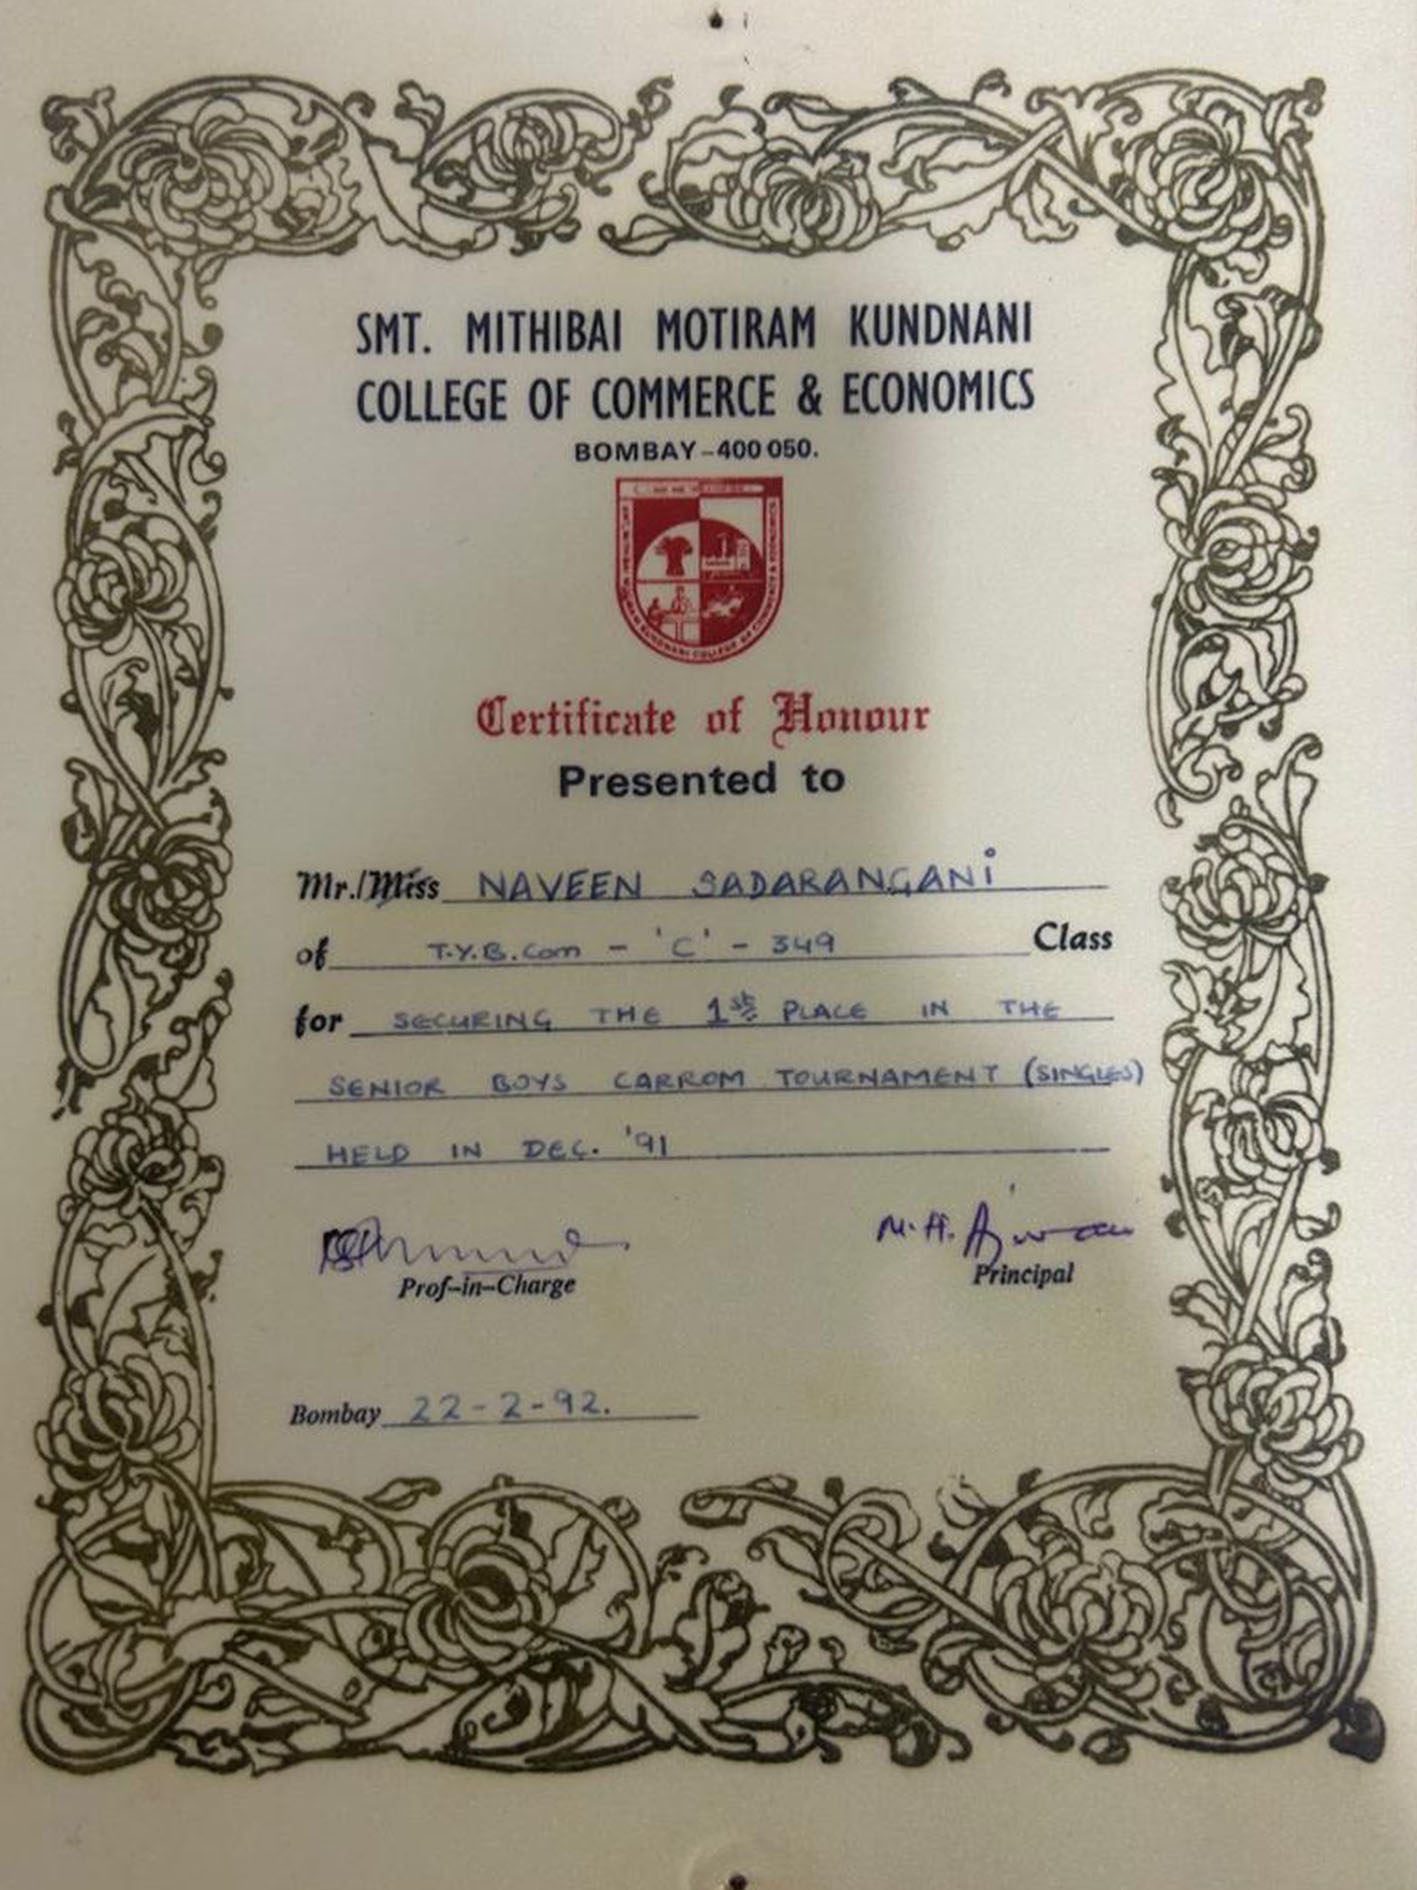 SMT. MITHIBAI MOTIRAM KUNDNANI
COLLEGE OF COMMERCE & ECONOMICS
BOMBAY-400 050.
Certificate of Honour
Presented to
Mr./Miss NAVEEN SADARANGANI
of T.Y.B.Com - 'C' - 349 Class
for SECURING THE 1st PLACE IN THE
SENIOR BOYS CARROM TOURNAMENT (SINGLES)
HELD IN DEC. '91
M.H.
Prof-in-Charge Principal
Bombay 22-2-92.